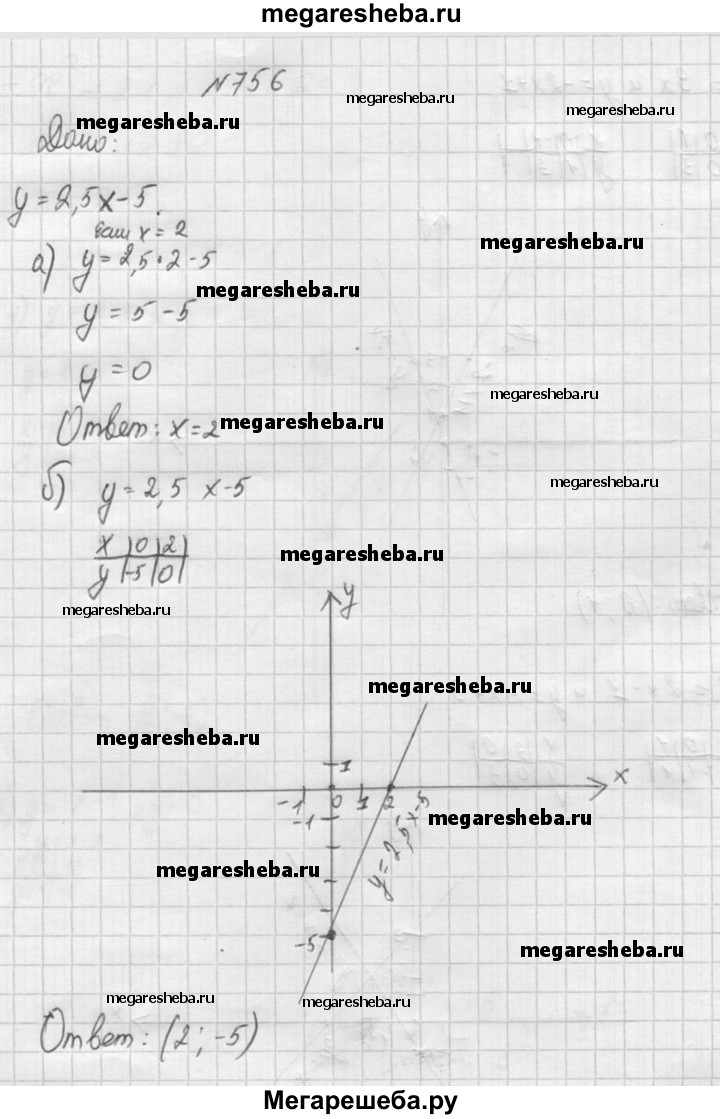 megaresheba.ru
№756
megaresheba.ru
megaresheba.ru
megaresheba.ru
Дано:
y = 2,5x - 5.
если x = 2
megaresheba.ru
а) y = 2,5 · 2 - 5
megaresheba.ru
y = 5 - 5
y = 0
megaresheba.ru
Ответ: x = 2
megaresheba.ru
б) y = 2,5 x - 5
megaresheba.ru
x | 0 | 2 |
y | -5 | 0 |
megaresheba.ru
megaresheba.ru
y
megaresheba.ru
megaresheba.ru
1
x
-1 0 1 2
-1
megaresheba.ru
y = 2,5x-5
megaresheba.ru
-5
megaresheba.ru
megaresheba.ru
megaresheba.ru
Ответ: (2; -5)
Мегарешеба.ру